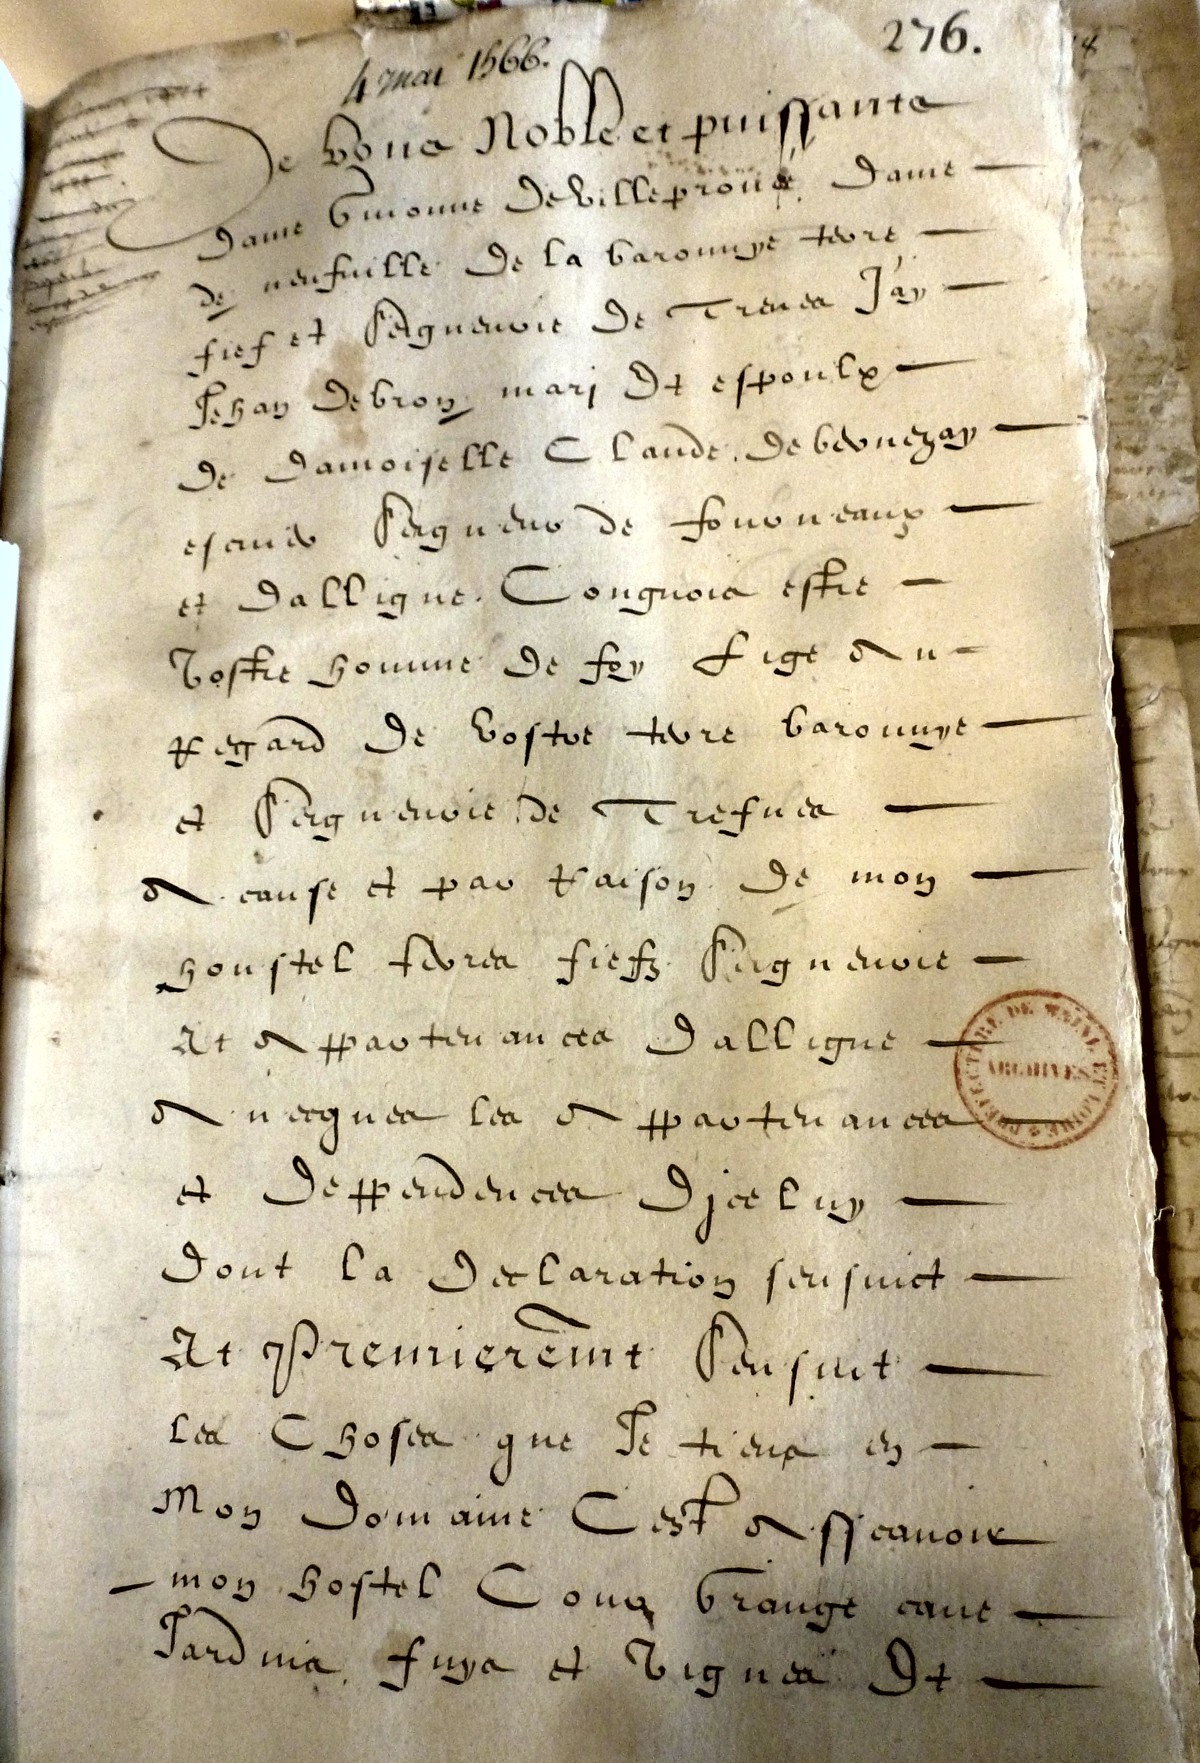 276.
4 mai 1566.
De vous Noble et puissante
dame Guionne de Villeprouée dame
de neufville de la baronnye terre
fief et Seigneurie de Treves J'ay
Jehan de bron mari et espoulx
de damoiselle Claude de bernezay
escuier Seigneur de fourneaux
et dalligne. Congnois estre
Vostre homme de foy lige Au
Regard de vostre terre baronnye
et Seigneurie de Trefves
A cause et par Raison de mon
houstel terres fiefz Seigneurie
Et Appartenances dalligne
Avecques les Appartenances
et deppendences djceluy
dont la declaration sensuict
Et Premieremt Sensuit
les Choses que Je tiens en
Mon Domaine Cest Assçavoir
mon hostel Court Grange cave
Jardins fuye et Vignes et
PREFECTURE DE MAINE ET LOIRE
ARCHIVES